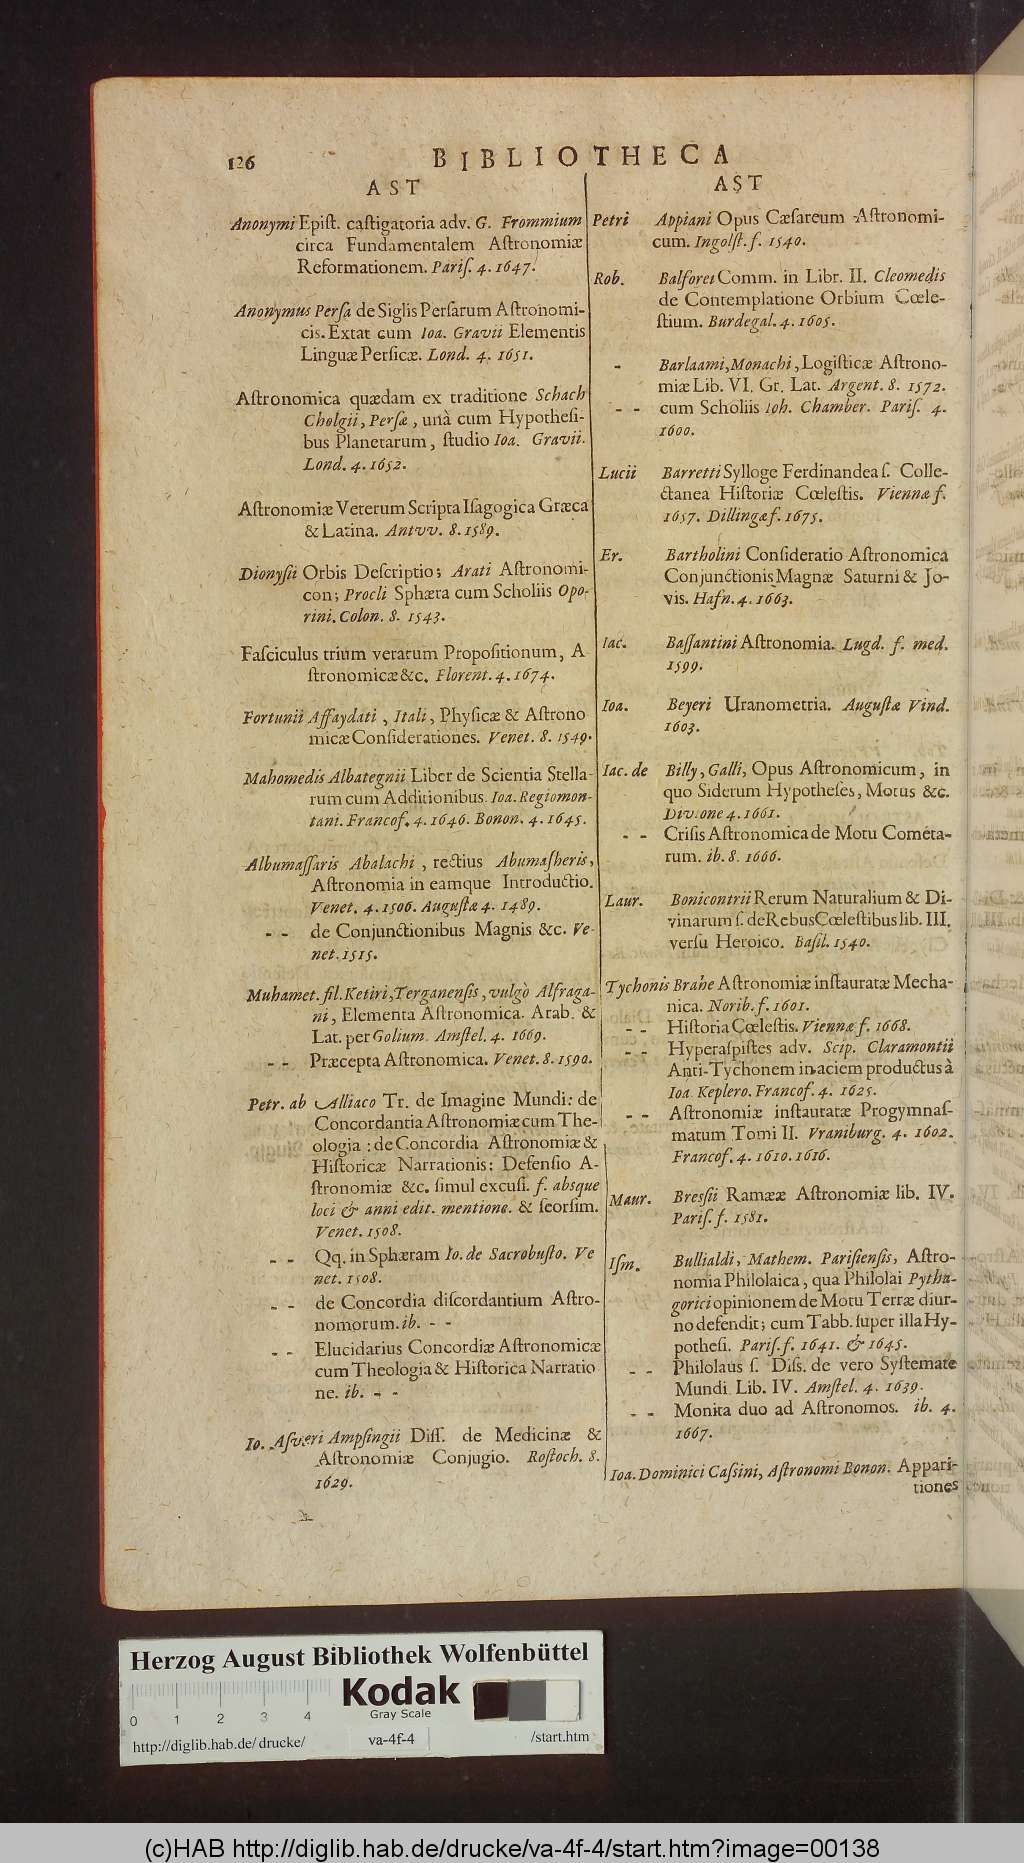 126
BIBLIOTHECA
AST
Anonymi Epiſt. caſtigatoria adv. G. Frommium
circa Fundamentalem Aſtronomiæ
Reformationem. Pariſ. 4. 1647.
Anonymus Perſa de Siglis Perſarum Aſtronomi-
cis. Extat cum Ioa. Gravii Elementis
Linguæ Perſicæ. Lond. 4. 1651.
Aſtronomica quædam ex traditione Schach
Cholgii, Perſæ, unà cum Hypotheſi-
bus Planetarum, ſtudio Ioa. Gravii.
Lond. 4. 1652.
Aſtronomiæ Veterum Scripta Iſagogica Græca
& Latina. Antvv. 8. 1589.
Dionyſii Orbis Deſcriptio; Arati Aſtronomi-
con; Procli Sphæra cum Scholiis Opo-
rini. Colon. 8. 1543.
Faſciculus trium verarum Propoſitionum, A
ſtronomicæ &c. Florent. 4. 1674.
Fortunii Affaydati, Itali, Phyſicæ & Aſtrono
micæ Conſiderationes. Venet. 8. 1549.
Mahomedis Albategnii Liber de Scientia Stella-
rum cum Additionibus. Ioa. Regiomon-
tani. Francof. 4. 1646. Bonon. 4. 1645.
Albumaſſaris Abalachi, rectius Abumaſheris,
Aſtronomia in eamque Introductio.
Venet. 4. 1506. Auguſtæ 4. 1489.
- - de Conjunctionibus Magnis &c. Ve-
net. 1515.
Muhamet. fil. Ketiri, Terganenſis, vulgò Alfraga-
ni, Elementa Aſtronomica. Arab. &
Lat. per Golium. Amſtel. 4. 1669.
- - Præcepta Aſtronomica. Venet. 8. 1590.
Petr. ab Alliaco Tr. de Imagine Mundi: de
Concordantia Aſtronomiæ cum The-
ologia: de Concordia Aſtronomiæ &
Hiſtoricæ Narrationis: Defenſio A-
ſtronomiæ &c. ſimul excuſi. f. absque
loci & anni edit. mentione. & ſeorſim.
Venet. 1508.
- - Qq. in Sphæram Io. de Sacrobuſto. Ve
net. 1508.
- - de Concordia diſcordantium Aſtro-
nomorum. ib. - -
- - Elucidarius Concordiæ Aſtronomicæ
cum Theologia & Hiſtorica Narratio
ne. ib. - -
Io. Aſveri Ampſingii Diſſ. de Medicinæ &
Aſtronomiæ Conjugio. Roſtoch. 8.
1629.
AST
Petri Appiani Opus Cæſareum Aſtronomi-
cum. Ingolſt. f. 1540.
Rob. Balforei Comm. in Libr. II. Cleomedis
de Contemplatione Orbium Cœle-
ſtium. Burdegal. 4. 1605.
- Barlaami, Monachi, Logiſticæ Aſtrono-
miæ Lib. VI. Gr. Lat. Argent. 8. 1572.
- - cum Scholiis Ioh. Chamber. Pariſ. 4.
1600.
Lucii Barretti Sylloge Ferdinandea ſ. Colle-
ctanea Hiſtoriæ Cœleſtis. Viennæ f.
1657. Dillingæ f. 1675.
Er. Bartholini Conſideratio Aſtronomica
Conjunctionis Magnæ Saturni & Jo-
vis. Hafn. 4. 1663.
Iac. Baſſantini Aſtronomia. Lugd. f. med.
1599.
Ioa. Beyeri Uranometria. Auguſtæ Vind.
1603.
Iac. de Billy, Galli, Opus Aſtronomicum, in
quo Siderum Hypotheſes, Motus &c.
Divione 4. 1661.
- - Criſis Aſtronomica de Motu Cometa-
rum. ib. 8. 1666.
Laur. Bonicontrii Rerum Naturalium & Di-
vinarum ſ. de Rebus Cœleſtibus lib. III.
verſu Heroico. Baſil. 1540.
Tychonis Brahe Aſtronomiæ inſtauratæ Mecha-
nica. Norib. f. 1601.
- - Hiſtoria Cœleſtis. Viennæ f. 1668.
- - Hyperaſpiſtes adv. Scip. Claramontii
Anti-Tychonem in aciem productus à
Ioa. Keplero. Francof. 4. 1625.
- - Aſtronomiæ inſtauratæ Progymnaſ-
matum Tomi II. Vraniburg. 4. 1602.
Francof. 4. 1610. 1616.
Maur. Breſſii Ramææ Aſtronomiæ lib. IV.
Pariſ. f. 1581.
Iſm. Bullialdi, Mathem. Pariſienſis, Aſtro-
nomia Philolaica, qua Philolai Pytha-
gorici opinionem de Motu Terræ diur-
no defendit; cum Tabb. ſuper illa Hy-
potheſi. Pariſ. f. 1641. & 1645.
- - Philolaus ſ. Diſſ. de vero Syſtemate
Mundi Lib. IV. Amſtel. 4. 1639.
- - Monita duo ad Aſtronomos. ib. 4.
1667.
Ioa. Dominici Caſsini, Aſtronomi Bonon. Appari-
tiones
Herzog August Bibliothek Wolfenbüttel
Kodak
Gray Scale
0 1 2 3 4
http://diglib.hab.de/drucke/ va-4f-4 /start.htm
(c)HAB http://diglib.hab.de/drucke/va-4f-4/start.htm?image=00138